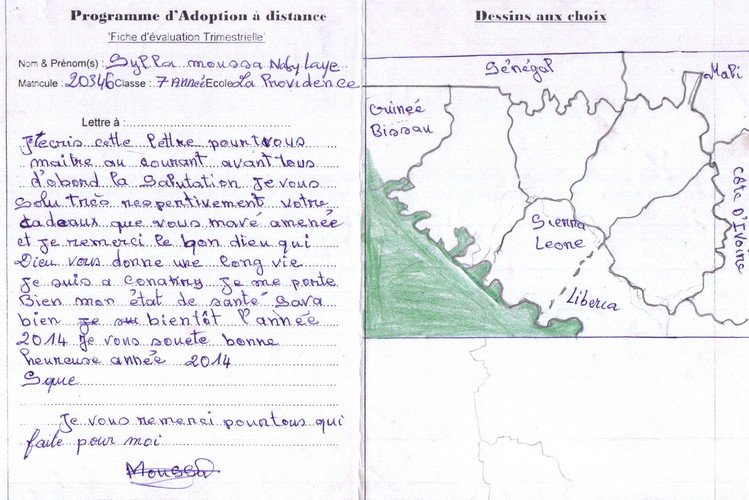 Programme d'Adoption à distance
'Fiche d'évaluation Trimestrielle'
Nom & Prénom(s) : Sylla moussa Naby Laye
Matricule : 20346 Classe : 7 année Ecole La Providence
Lettre à :
J'écris cette lettre pour vous
maitre au courant avant tous
d'abord la salutation Je vous
salu très respentivement votre
cadeaux que vous mavé amenée
et je remerci le bon dieu qui
Dieu vous donne une long vie
je suis a Conakry Je me porte
Bien mon état de santé sava
bien je bientôt l'année
2014 je vous souete bonne
heureuse année 2014
Sque
Je vous remerci pour tous qui
faite pour moi
Moussa
Dessins aux choix
Sénégal
Mali
Guinée
Bissau
Côte D'Ivoire
Sierra
Leone
Liberia